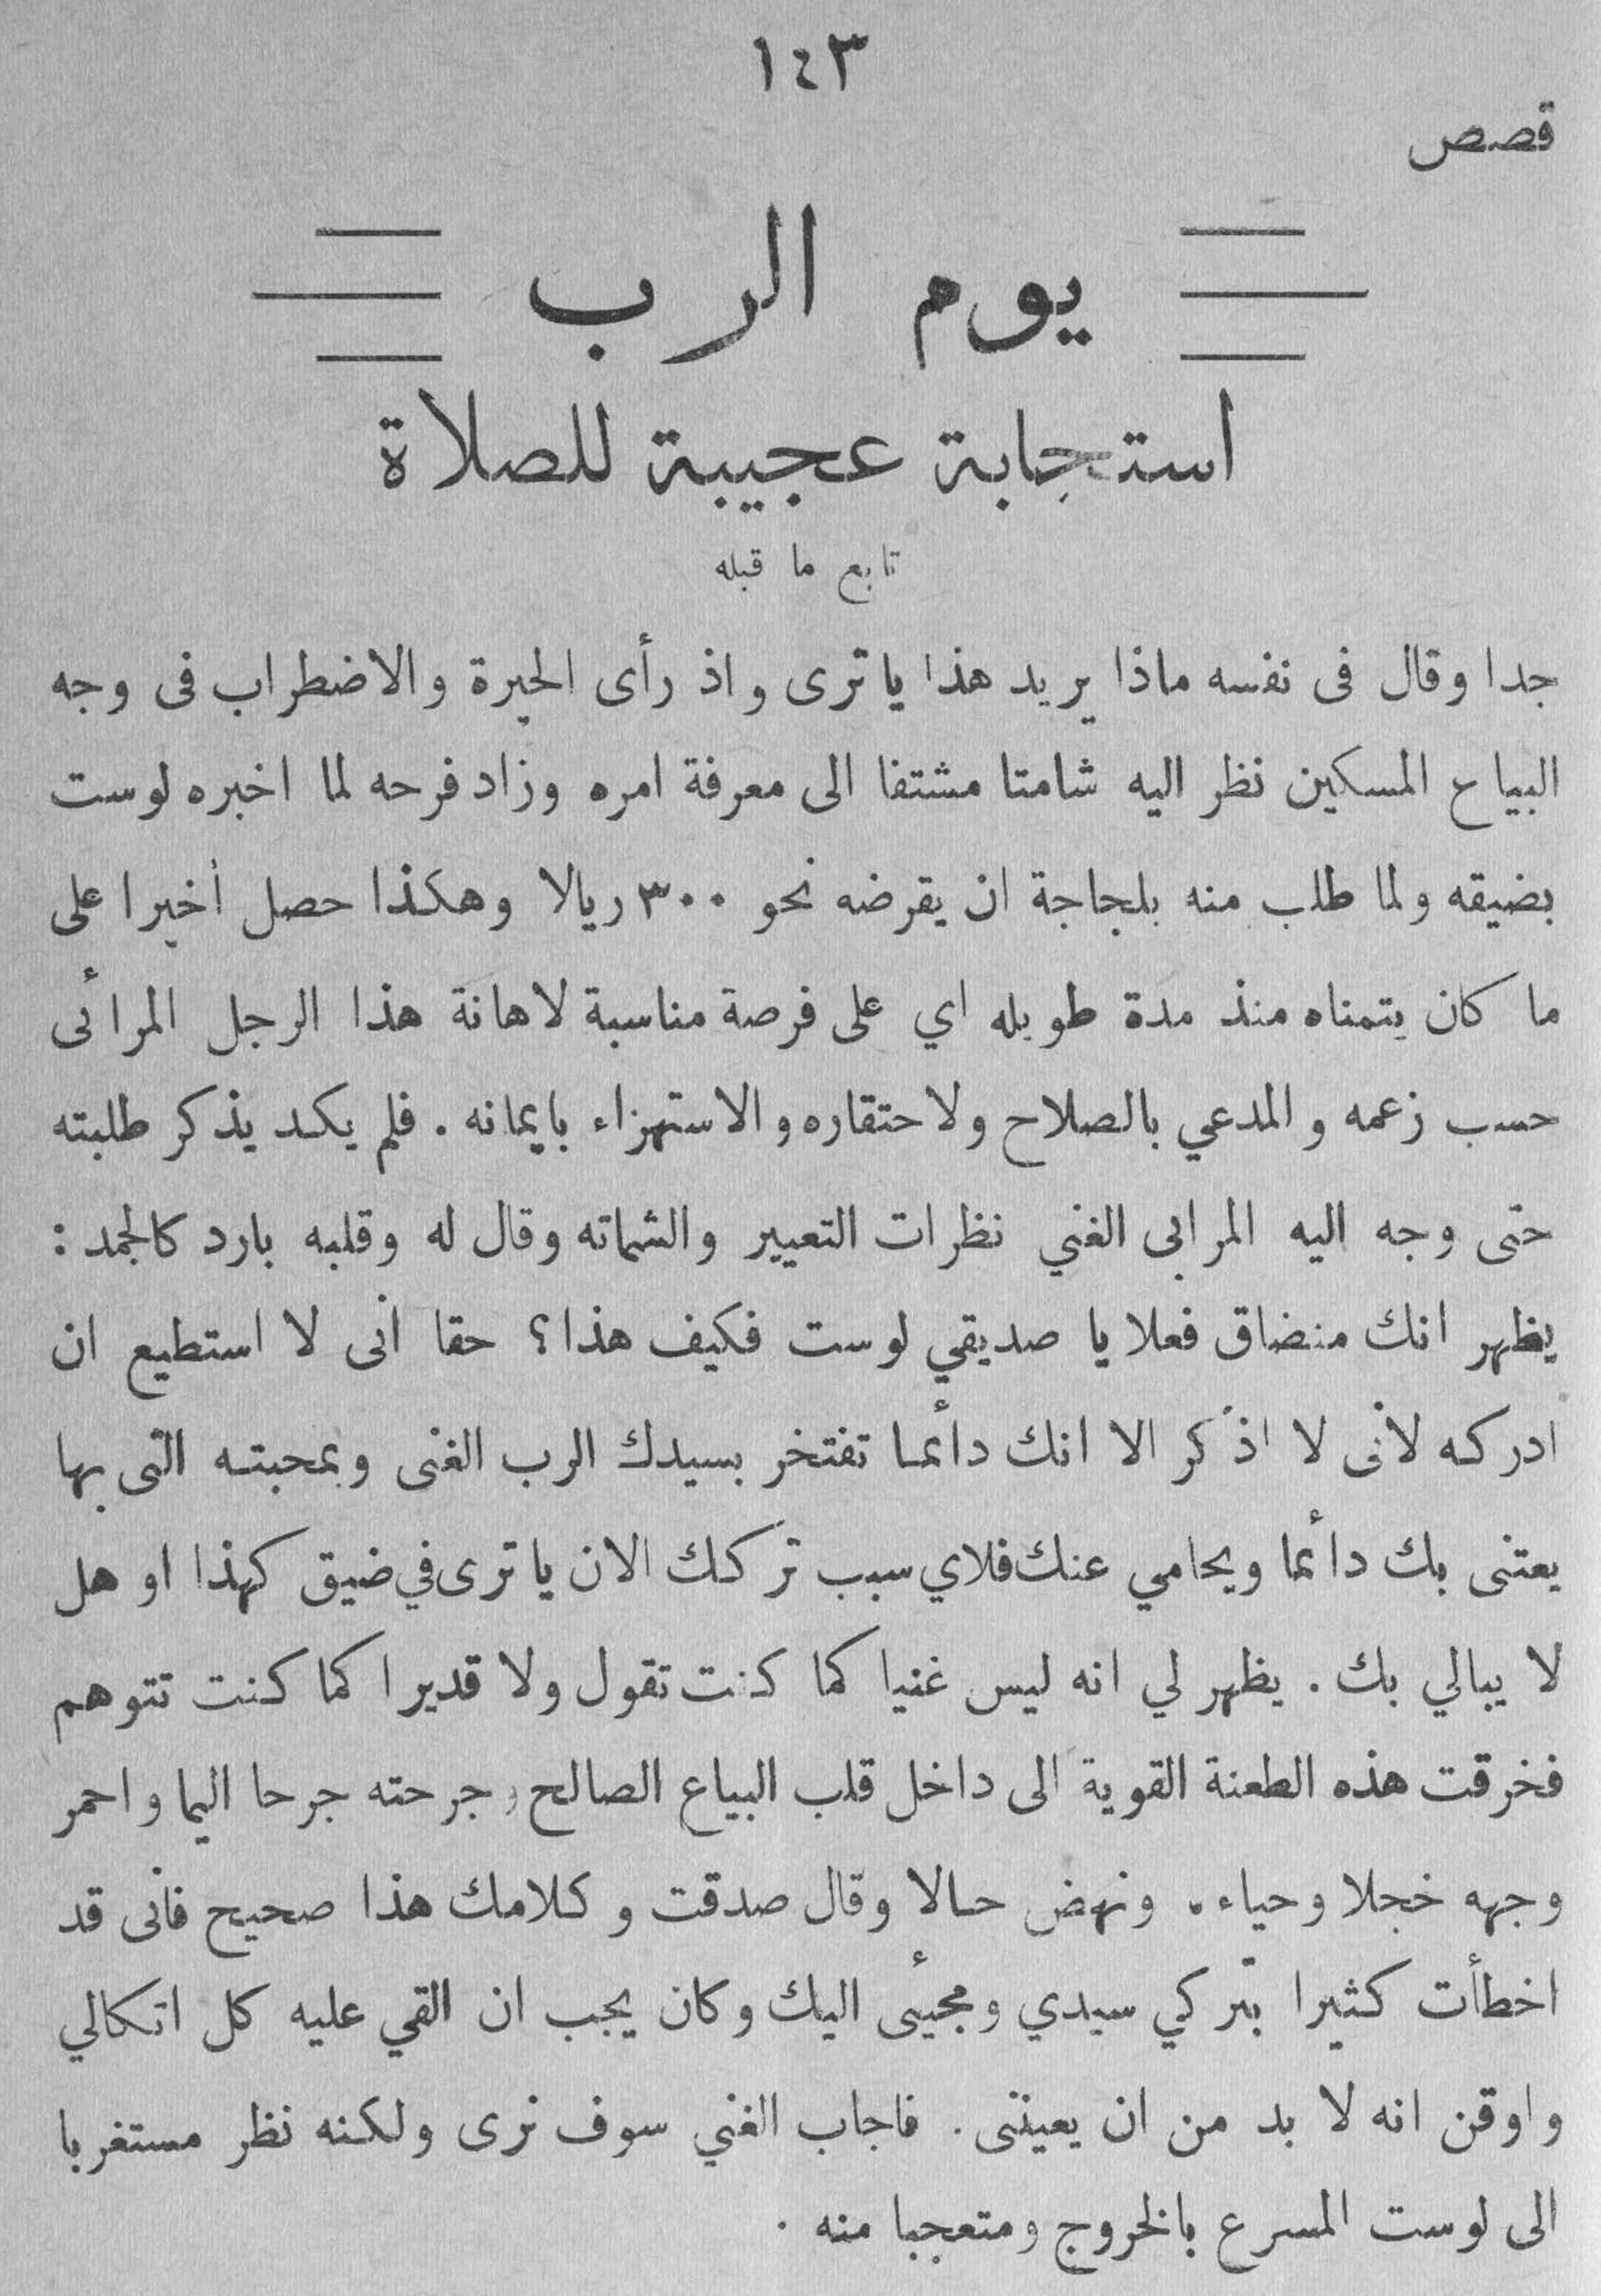 ١٤٣
قصص
يوم الرب
استجابة عجيبة للصلاة
تابع ما قبله
جدا وقال فى نفسه ماذا يريد هذا يا ترى واذ رأى الحيرة والاضطراب فى وجه
البياع المسكين نظر اليه شامتا مشتفا الى معرفة امره وزاد فرحه لما اخبره لوست
بضيقه ولما طلب منه بلجاجة ان يقرضه نحو ٣٠٠ ريالا وهكذا حصل أخيرا على
ما كان يتمناه منذ مدة طويله اي على فرصة مناسبة لاهانة هذا الرجل المرائى
حسب زعمه والمدعي بالصلاح ولاحتقاره والاستهزاء بايمانه . فلم يكد يذكر طلبته
حتى وجه اليه المرابى الغني نظرات التعيير والشماته وقال له وقلبه بارد كالجمد :
يظهر انك منضاق فعلا يا صديقي لوست فكيف هذا ؟ حقا انى لا استطيع ان
ادركه لانى لا اذكر الا انك دائما تفتخر بسيدك الرب الغنى وبمحبته التى بها
يعتنى بك دائما ويحامي عنك فلاي سبب تركك الان يا ترى في ضيق كهذا او هل
لا يبالي بك . يظهر لي انه ليس غنيا كما كنت تقول ولا قديرا كما كنت تتوهم
فخرقت هذه الطعنة القوية الى داخل قلب البياع الصالح وجرحته جرحا اليما واحمر
وجهه خجلا وحياء . ونهض حالا وقال صدقت وكلامك هذا صحيح فانى قد
اخطأت كثيرا بتركي سيدي ومجيئى اليك وكان يجب ان القي عليه كل اتكالي
واوقن انه لا بد من ان يعيننى . فاجاب الغني سوف نرى ولكنه نظر مستغربا
الى لوست المسرع بالخروج ومتعجبا منه .